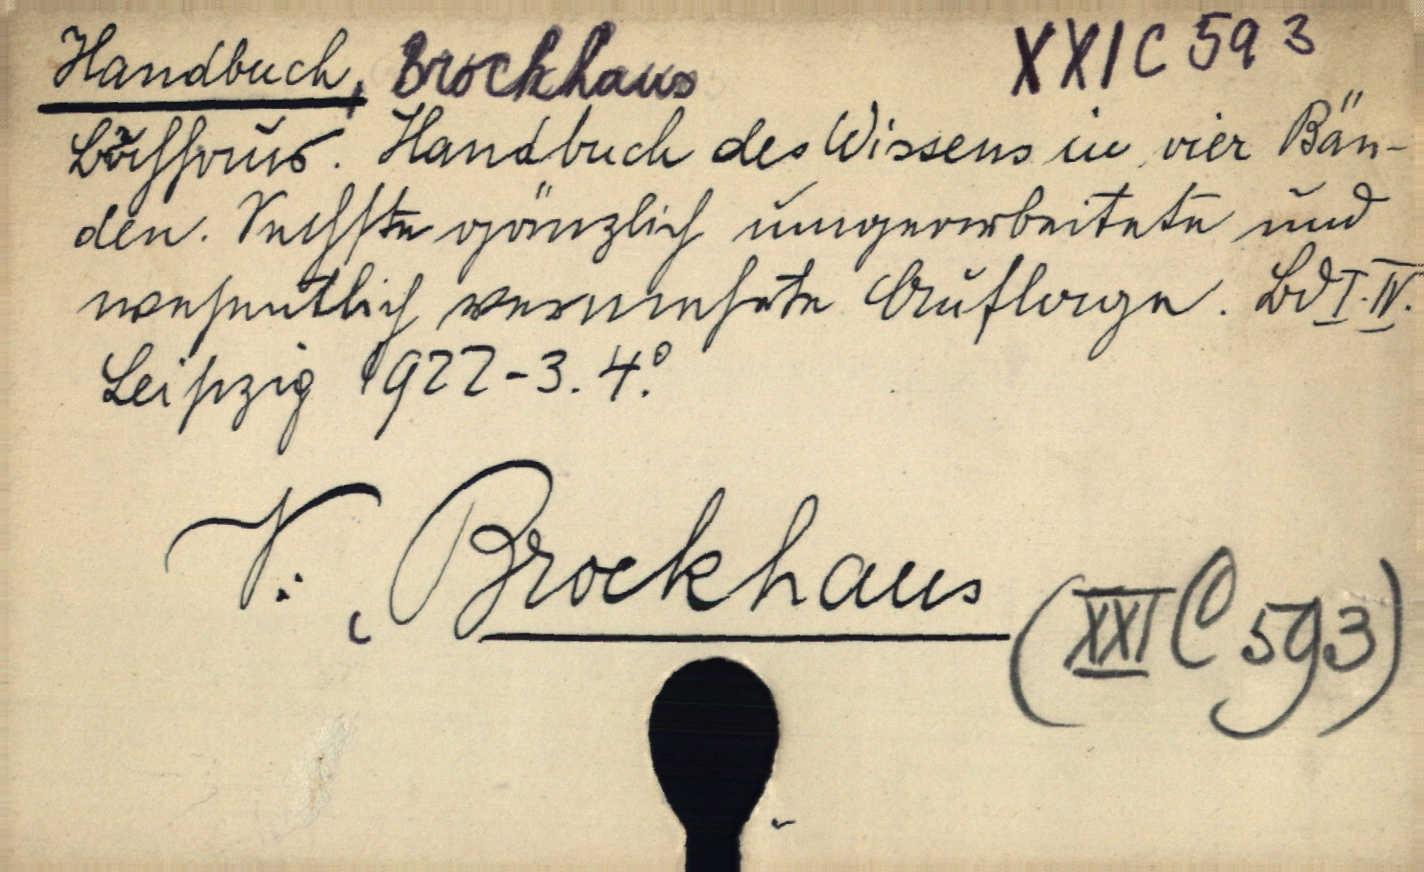 Handbuch, Brockhaus XXI C 593
Handbuch des Wissens in vier Bän-
den. Sechste gänzlich umgearbeitete und
wesentlich vermehrte Auflage. Bd I-IV.
Leipzig 1922-3. 4.°
V.: Brockhaus
(XXI C 593)